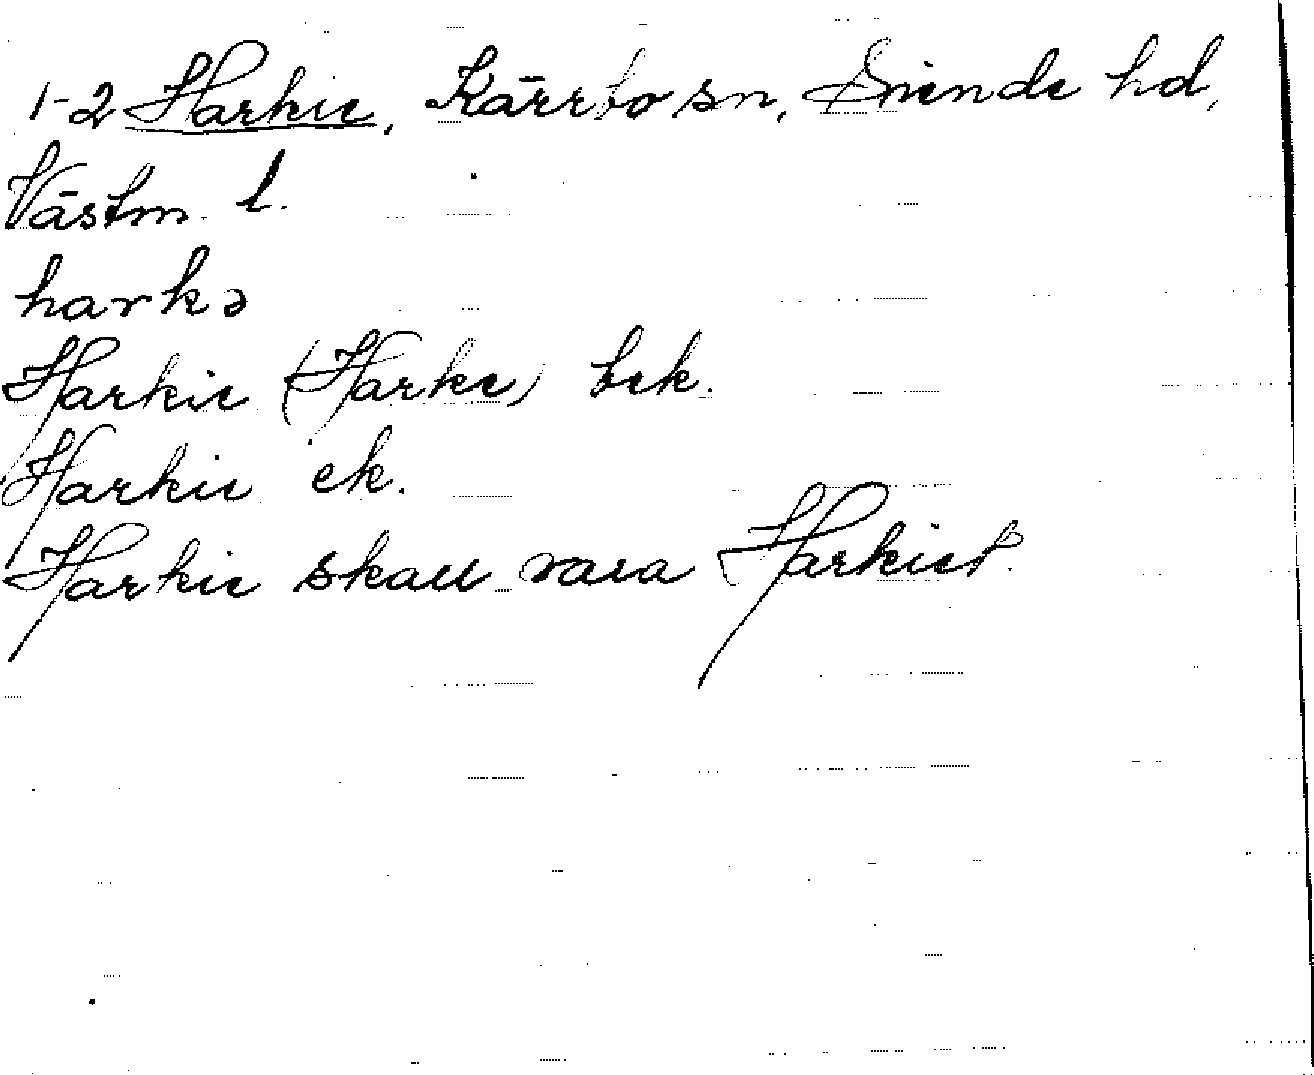 1-2 Harkie, Kärrbo sn, Siende hd,
Västm. l.
harkə
Harkie (Harke) bek.
Harkie ek.
Harkie skall vara Harkiet.